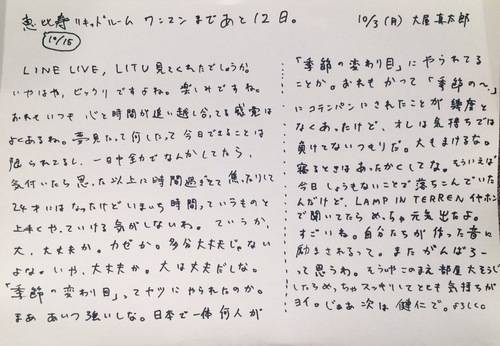 恵比寿リキッドルーム ワンマンまであと12日。
10/15
10/3(月) 大屋真太郎
LINE LIVE, LITU 見てくれたでしょうか。
いやはや、ビックリですよね。楽しみですね。
おれもいつも 心と時間が追い越し合ってる感覚は
よくあるね。夢見たって何したって今日できることは
限られてるし、一日中全力でなんかしてたら、
気付いたら思った以上に時間過ぎてて焦ったりして
24才にはなったけどいまいち時間っていうものと
上手くやっていける気がしないわ。ていうか、
大、大丈夫か。カゼか。多分大丈夫じゃない
よな。いや、大丈夫か。大は大丈夫だしな。
「季節の変わり目」ってヤツにやられたのか。
まあ あいつ強いしな。日本で一体何人が
「季節の変わり目」にやられてる
ことか。おれもかつて「季節の〜」
にコテンパンにされたことが幾度と
なくあったけど、オレは気持ちでは
負けてないつもりだ。大もまけるな。
寝るときはあったかくしてな。そういえば
今日しょうもないことで落ちこんでいた
んだけど、LAMP IN TERREN イヤホン
で聞いてたら めっちゃ元気出たよ。
すごいね。自分たちが作った音に
励まされるって。またがんばろー
って思うわ。そういやこのまえ部屋 大そうじ
したらめっちゃスッキリしてとても気持ちが
ヨイ。じゃあ次は健仁で。よろしく。